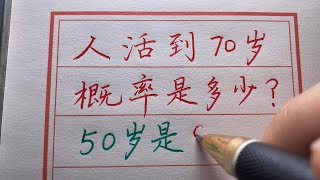 人活到70岁
概率是多少?
50岁是